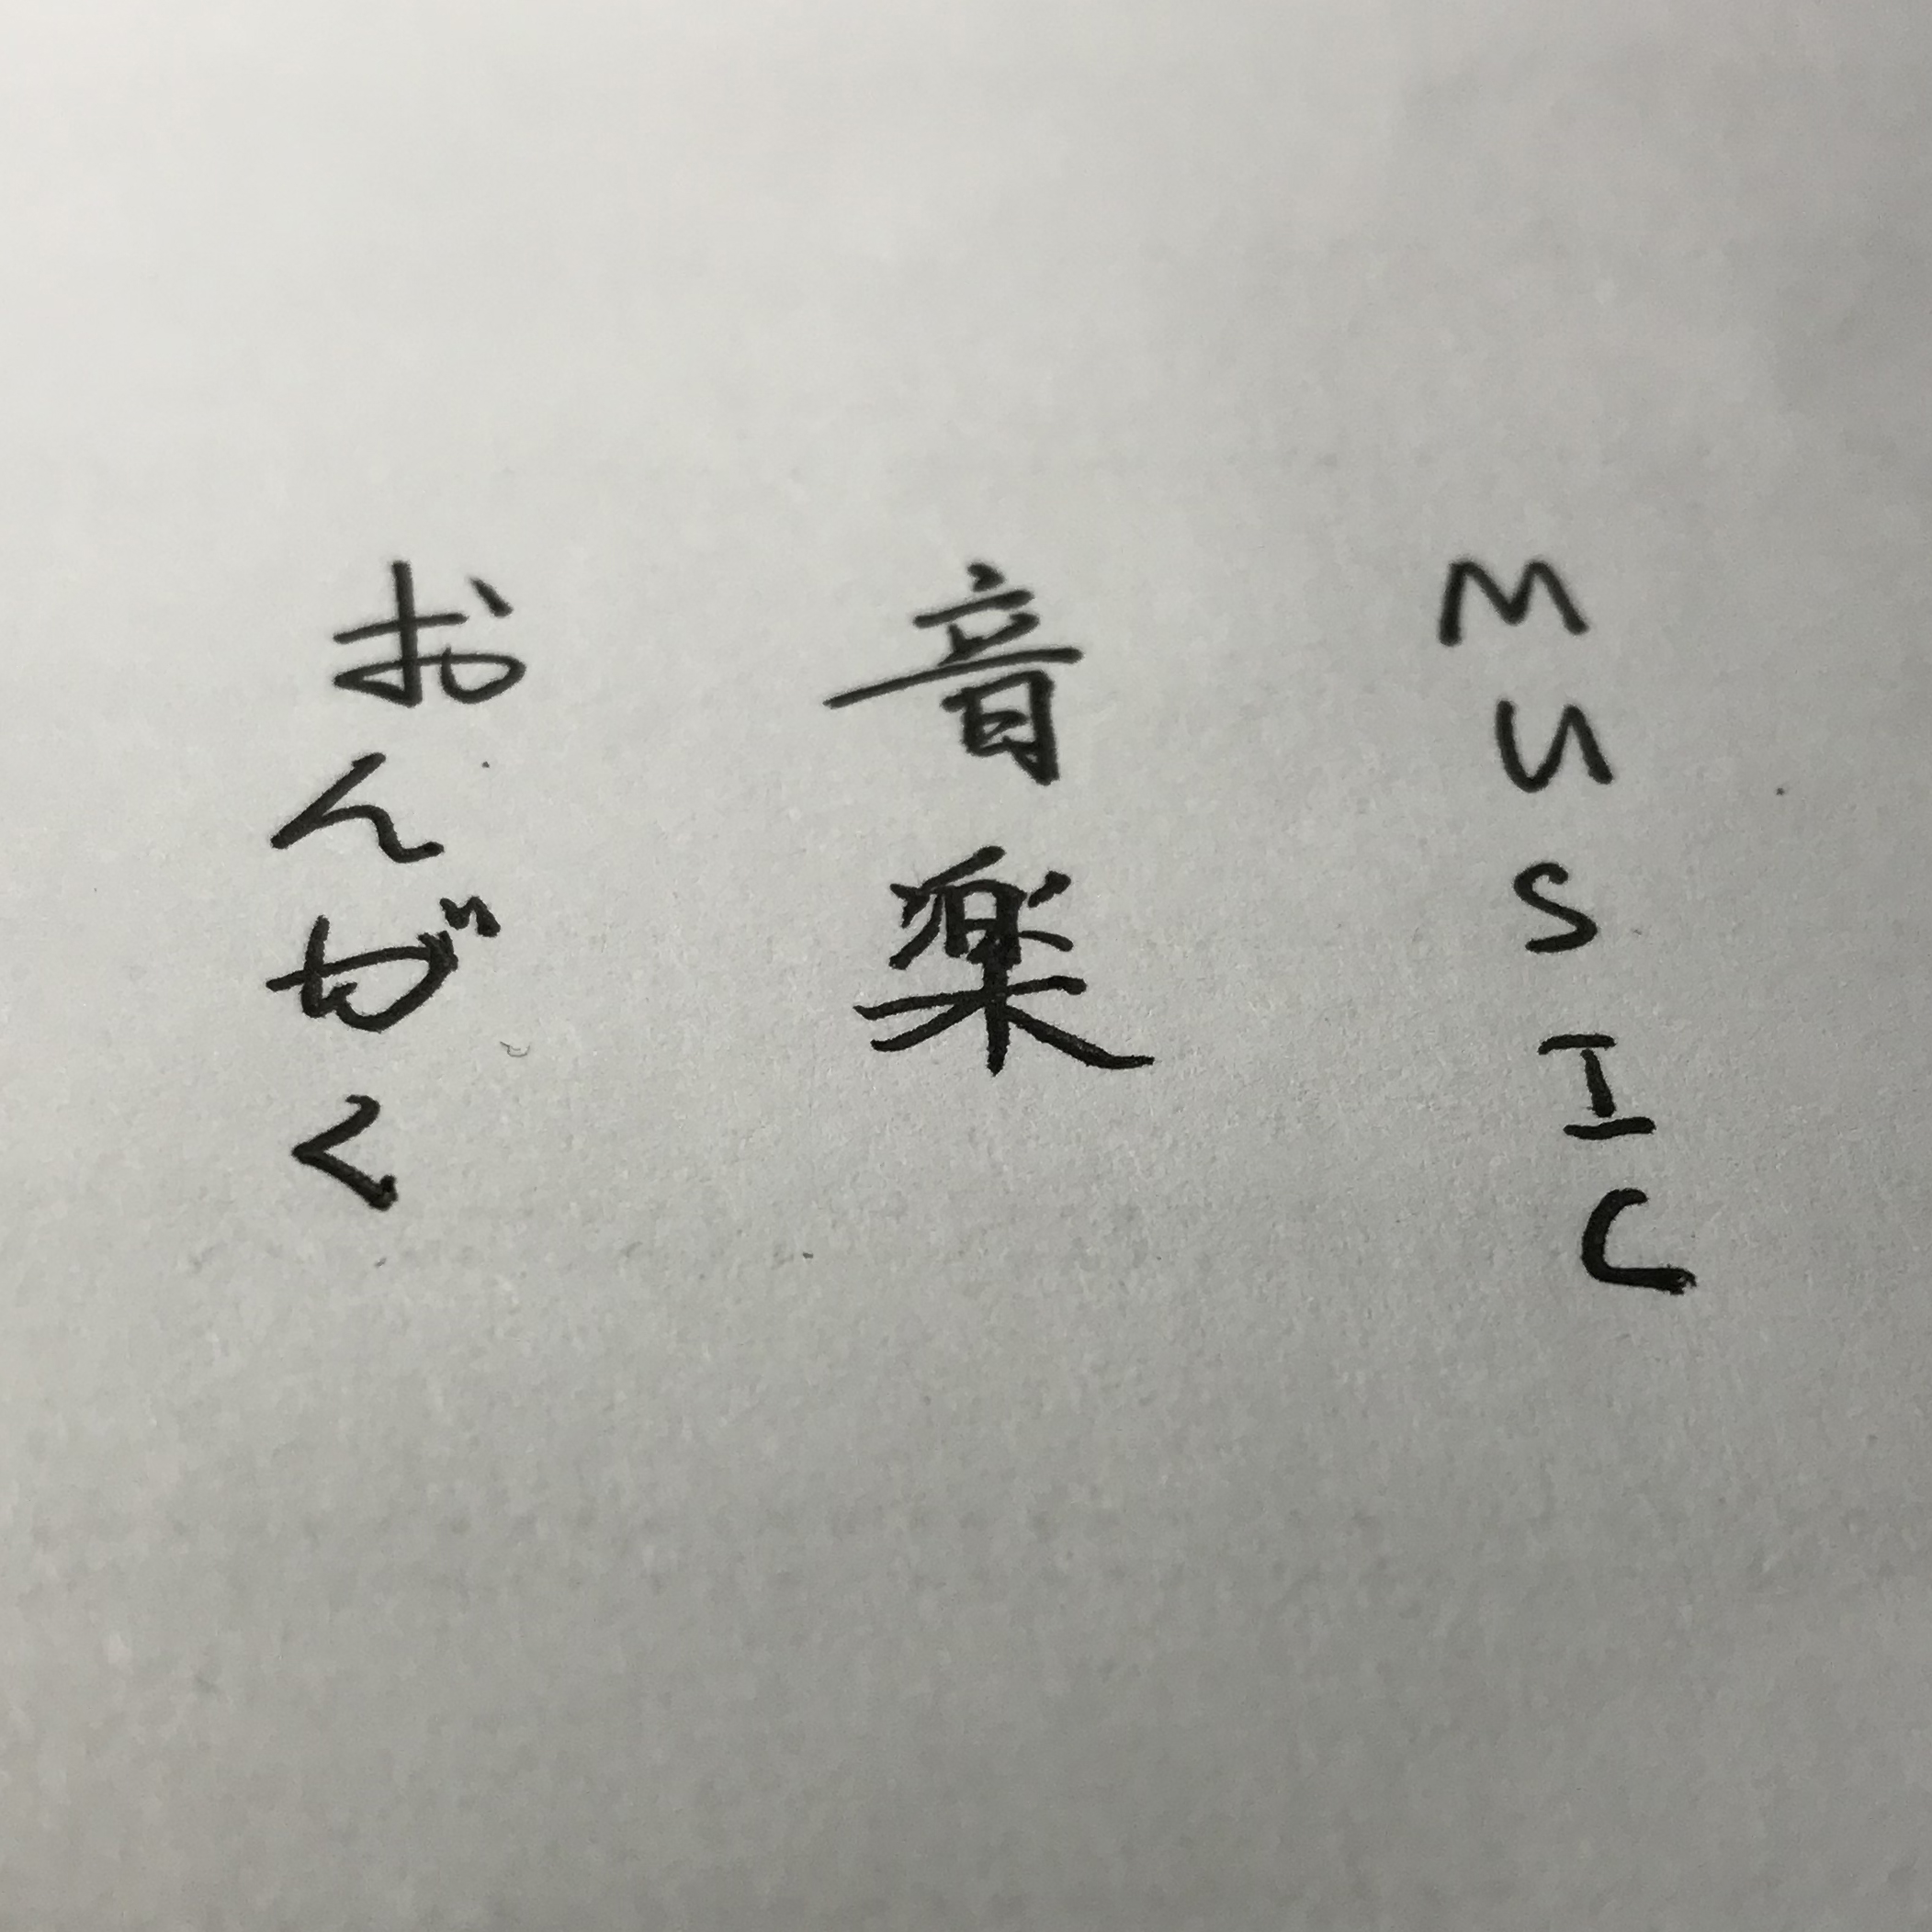 MUSIC
音楽
おんがく